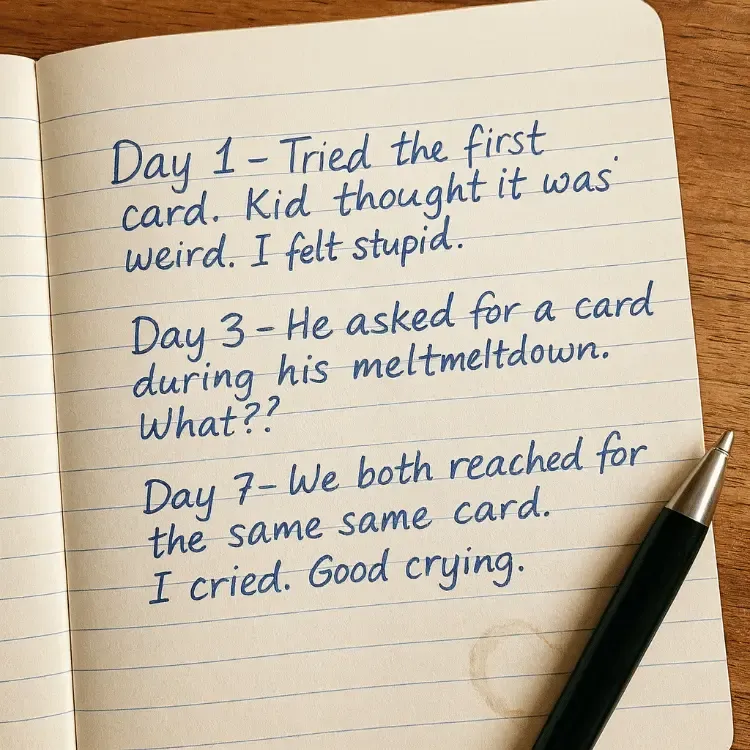 Day 1 – Tried the first
card. Kid thought it was
weird. I felt stupid.
Day 3 – He asked for a card
during his meltmeltdown.
What??
Day 7 – We both reached for
the same same card.
I cried. Good crying.